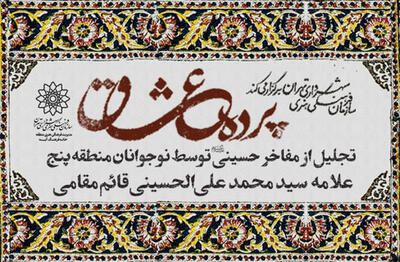 سازمان فرهنگی هنری شهرداری تهران برگزار می کند
پرده عشاق
تجلیل از مفاخر حسینی توسط نوجوانان منطقه پنج
علامه سید محمد علی الحسینی قائم مقامی